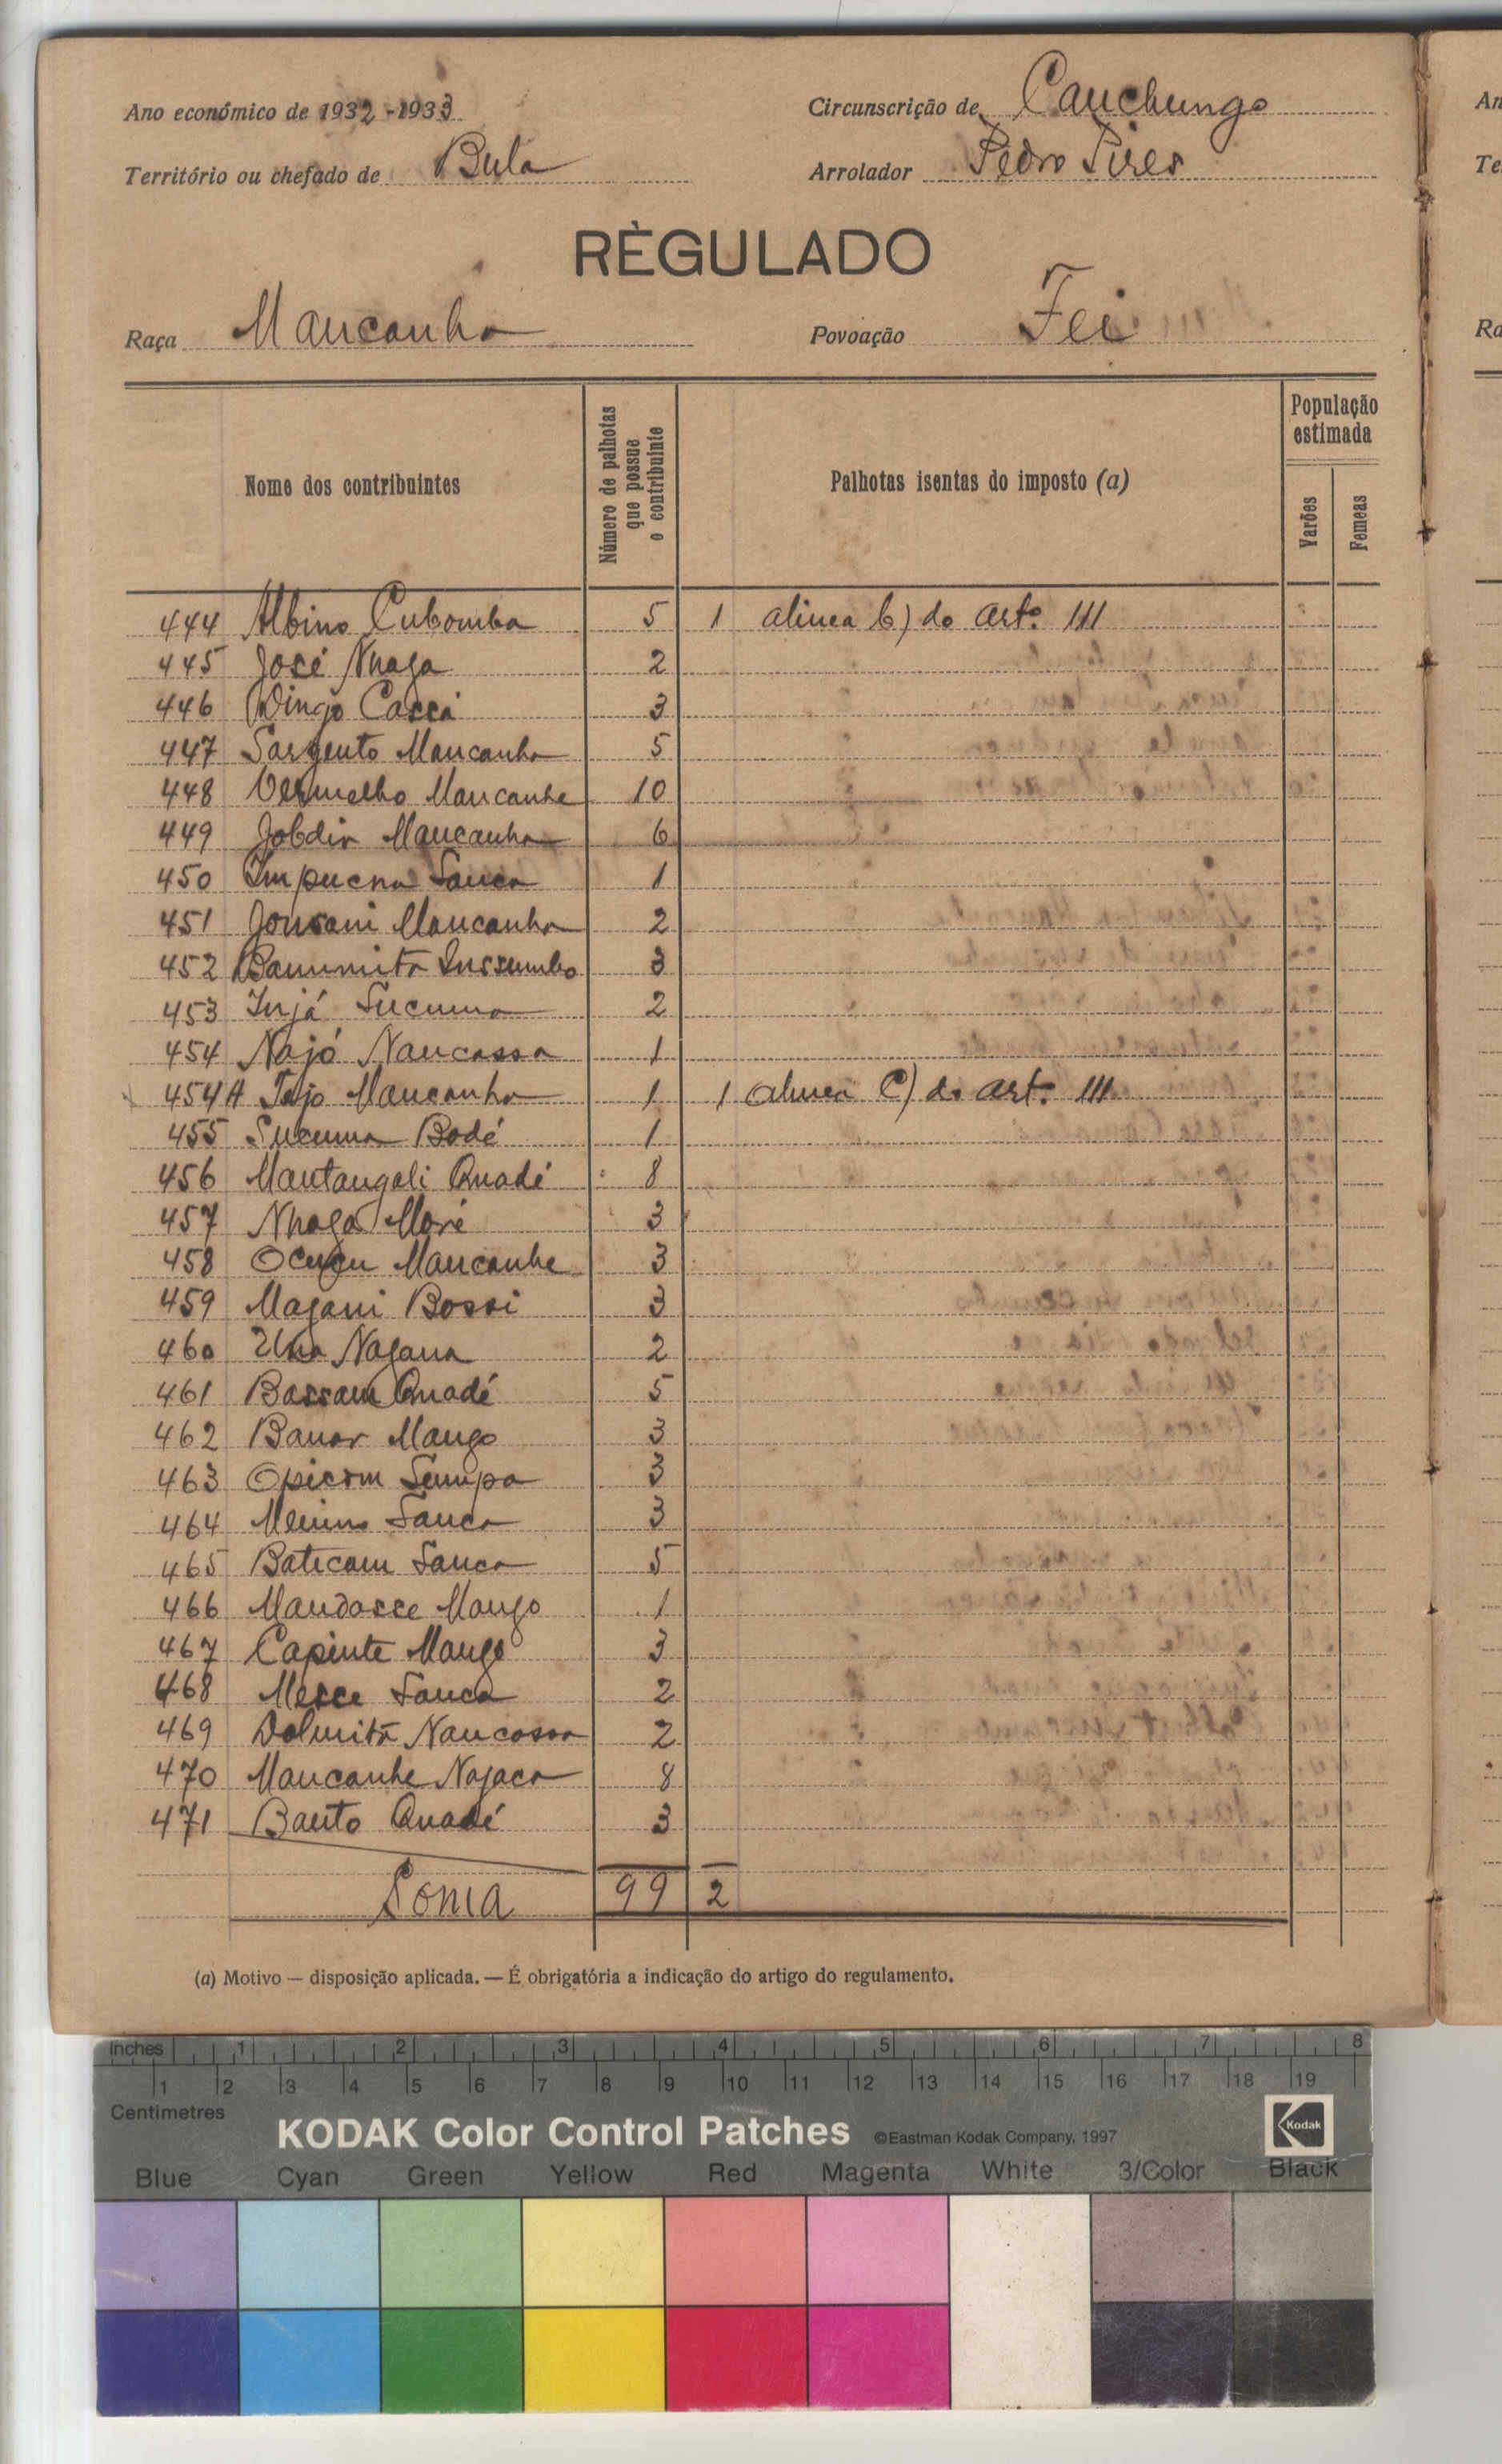 Ano económico de 1932-1933 Circunscrição de Canchungo
Território ou chefado de Bula Arrolador Pedro Pires
RÈGULADO
Raça Mancanha Povoação Fei
Nome dos contribuintes Número de palhotas que possue o contribuinte Palhotas isentas do imposto (a) População estimada Varões Femeas
444 Albino Cubomba 5 1 alinea b) do artº. 111
445 José Nhaga 2
446 Dingo Cassá 3
447 Sargento Mancanha 5
448 Vermelho Mancanhe 10
449 Jobdir Mancanha 6
450 Impucna Sanca 1
451 Jonsani Mancanha 2
452 Banumita Inssumbo 3
453 Injá Sucuma 2
454 Najó Nancassa 1
454A Tejo Mancanha 1 1 alinea C) do artº. 111
455 Sucuma Bodé 1
456 Mantangali Quadé 8
457 Nhaga Moré 3
458 Ocucu Mancanhe 3
459 Magani Bossi 3
460 Una Nagana 2
461 Bassam Quadé 5
462 Banar Mango 3
463 Opicom Sempa 3
464 Menino Sanca 3
465 Baticam Sanca 5
466 Mandasse Mango 1
467 Capinte Mango 3
468 Messe Sanca 2
469 Dolmitã Nancassa 2
470 Mancanhe Najaca 8
471 Banto Quadé 3
Soma 99 2
(a) Motivo — disposição aplicada. — É obrigatória a indicação do artigo do regulamento.
Inches 1 2 3 4 5 6 7 8
1 2 3 4 5 6 7 8 9 10 11 12 13 14 15 16 17 18 19
Centimetres
KODAK Color Control Patches ©Eastman Kodak Company, 1997 Kodak
Blue Cyan Green Yellow Red Magenta White 3/Color Black